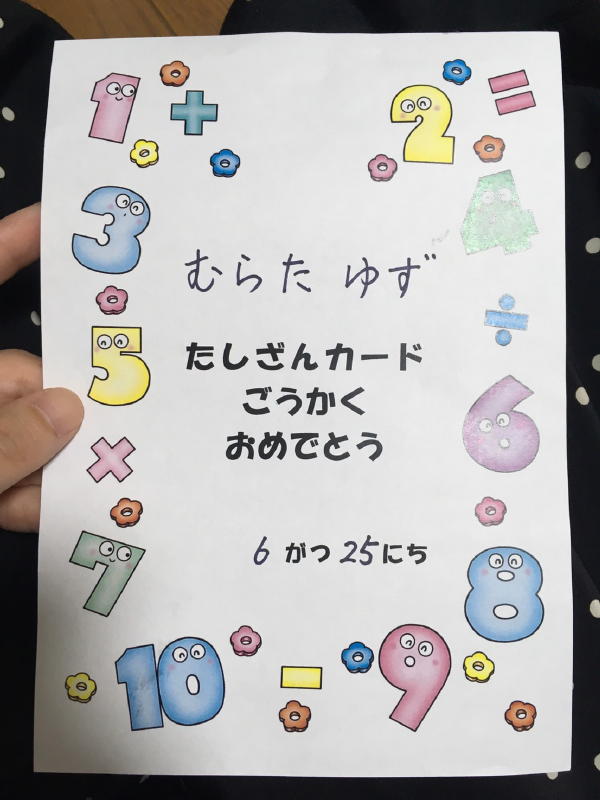 1 + 2 =
3 4
むらた ゆず
÷
5
たしざんカード
ごうかく
6
おめでとう
×
6 がつ 25にち
7 8
10 - 9